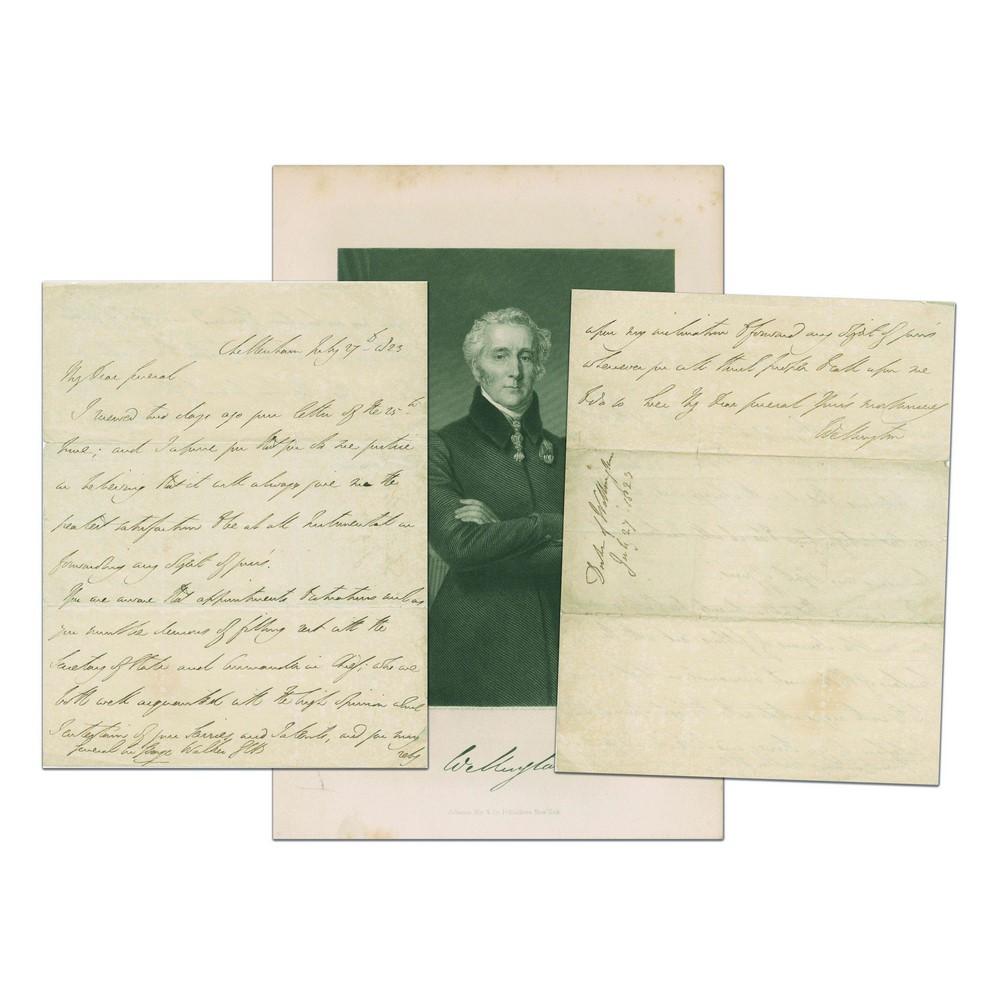 Cheltenham July 27th 1823
My Dear General
I received two days ago your letter of the 25th
Inst; and I assure you that you do me justice
in believing that it will always give me the
greatest satisfaction to be at all Instrumental in
forwarding any object of yours.
You are aware that appointments & situations such as
you would be desirous of filling rest with the
Secretary of State and Commander in Chief; who are
both well acquainted with the high opinion which
I entertain of your Services and Talents, and you may
rely
General Sir George Walker GCB
upon my inclination to forward any object of yours
whenever you will think proper to call upon me
to do so
My Dear General Yours most sincerely
Wellington
Duke of Wellington
July 27 1823
Wellington
Johnson, Fry & Co. Publishers, New York